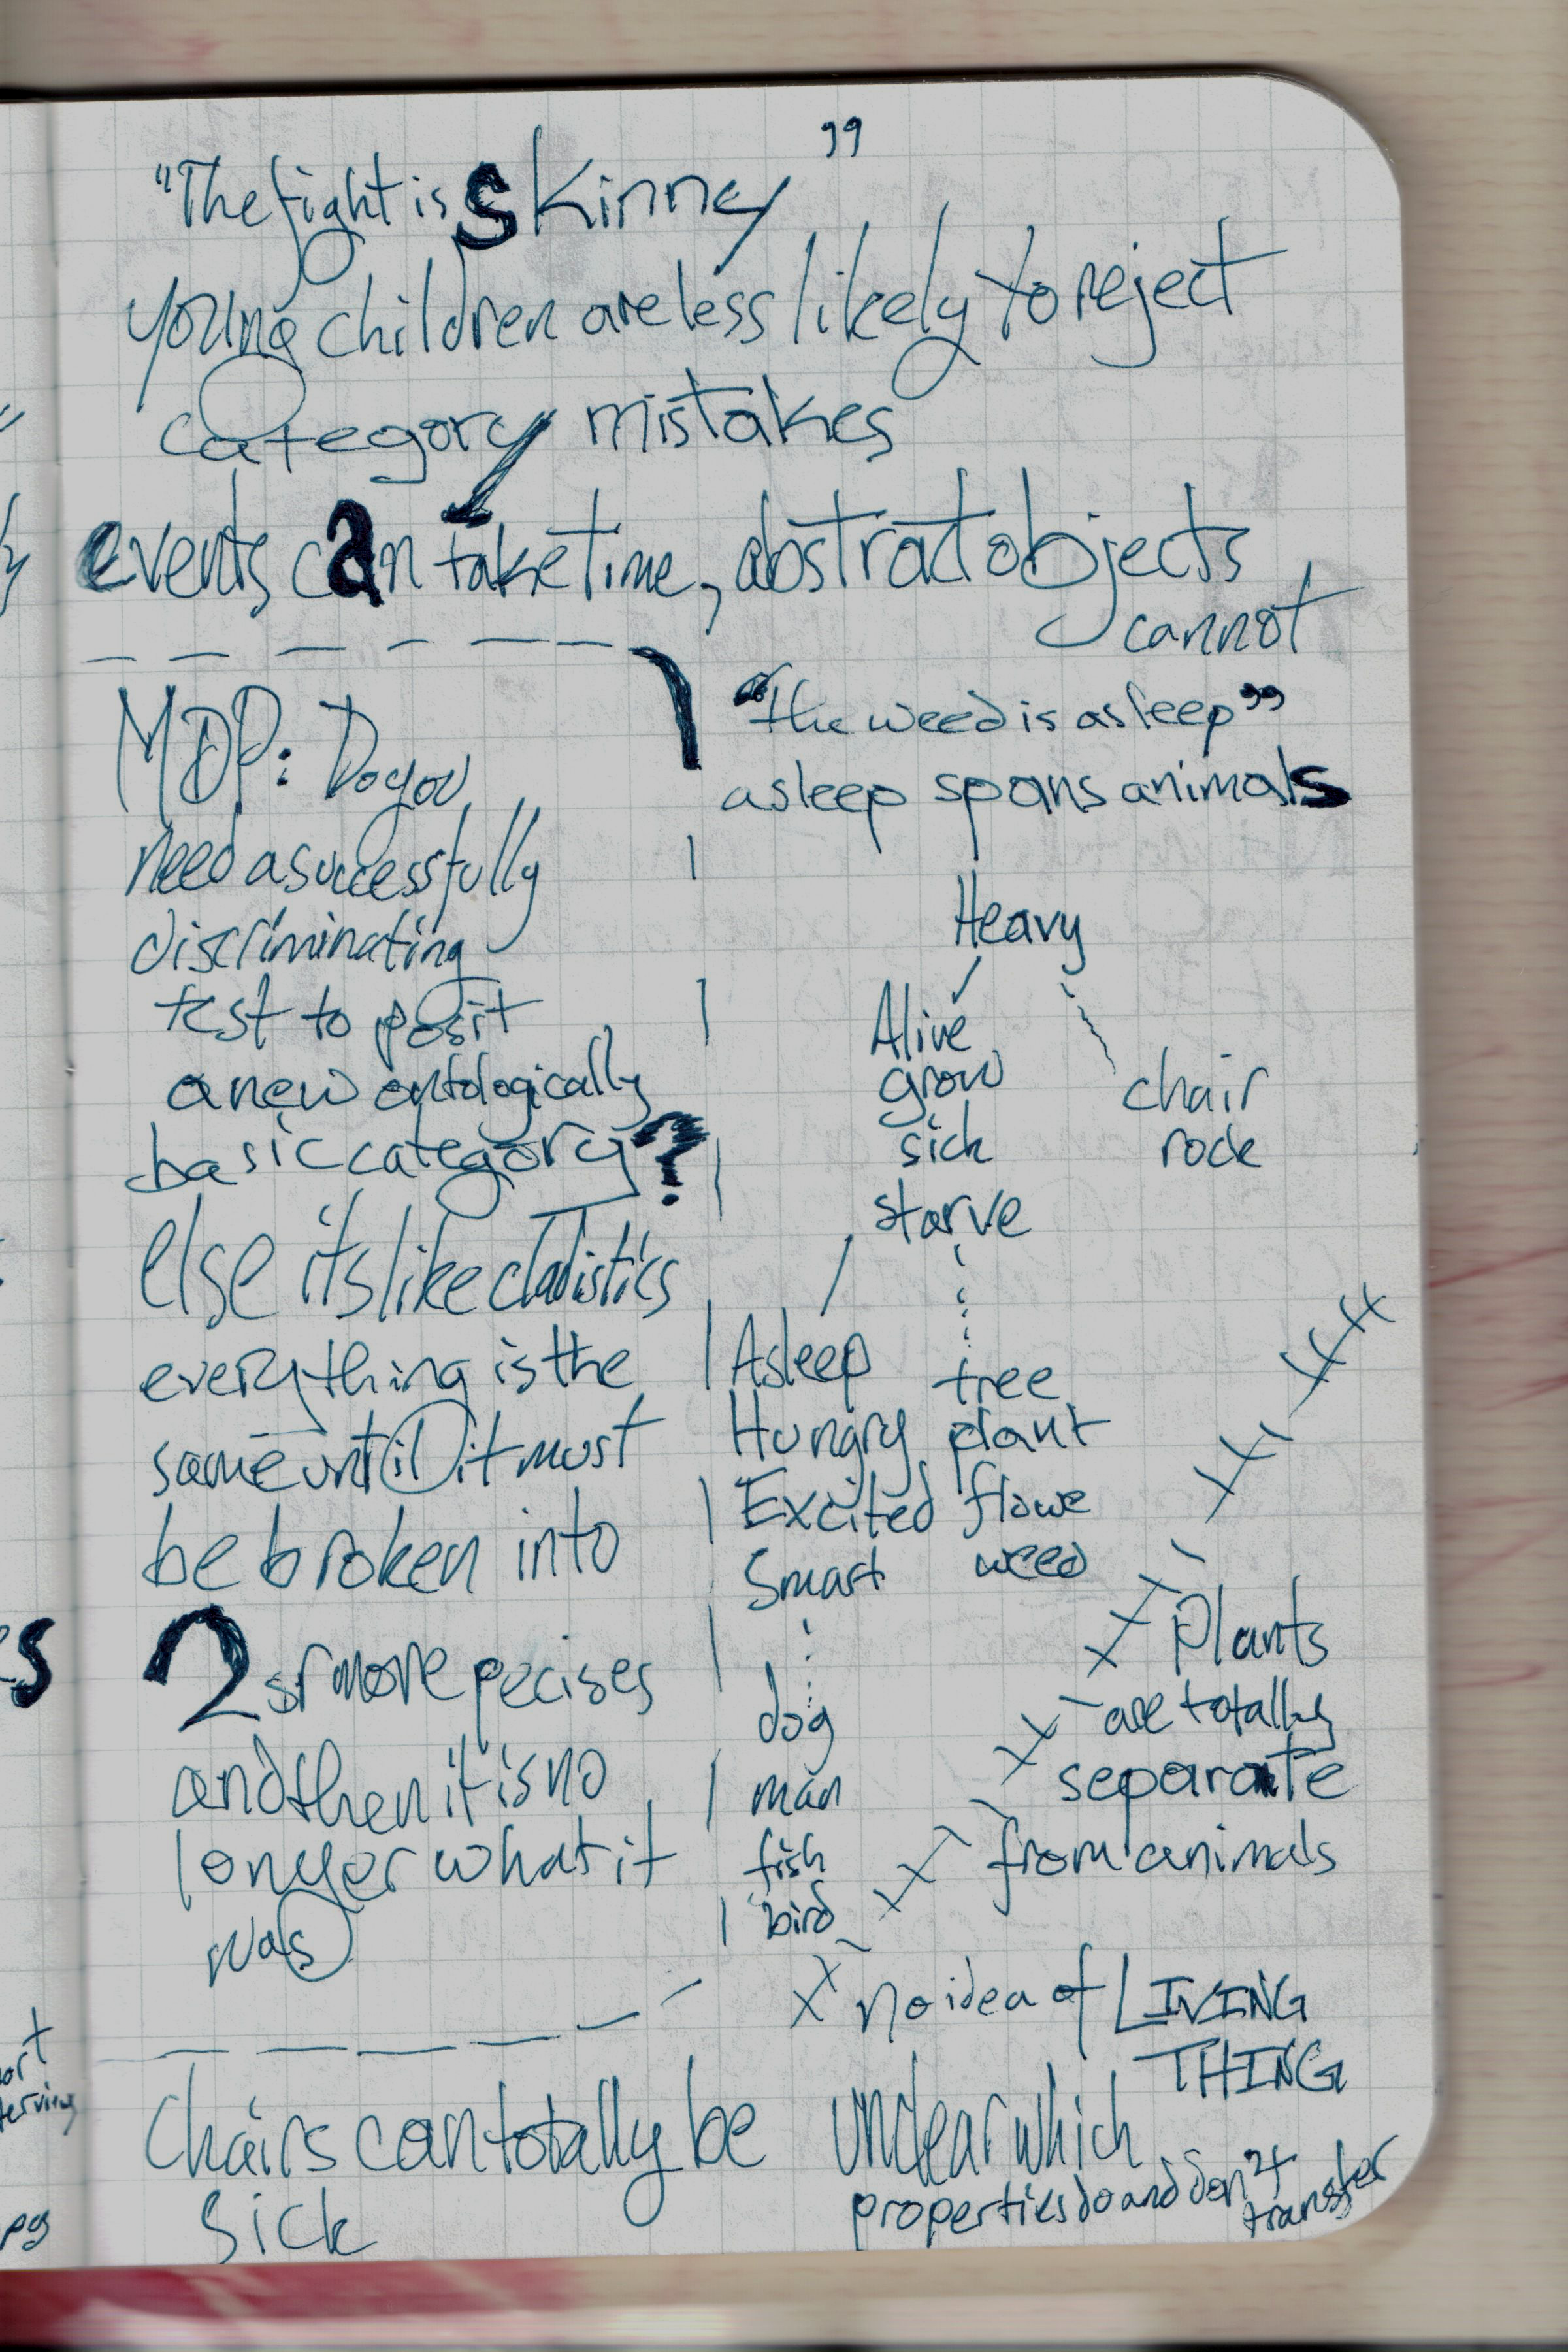 "The fight is skinny"
young children are less likely to reject
category mistakes
events can take time, abstrat objects
cannot
MDP: Do you
need a successfully
discriminating
test to posit
a new ontologically
basic category?
else its like cladistics
everything is the
same until it must
be broken into
2 or more pecises
and then it is no
longer what it
was
"the weed is asleep"
asleep spans animals
Heavy
Alive
grow
sick
starve
chair
rock
Asleep
Hungry
Excited
Smart
tree
plant
flowe
weed
dog
man
fish
bird
Plants
are totally
separate
from animals
no idea of LIVING
THING
Chairs can totally be
sick
unclear which
properties do and don't
transfer